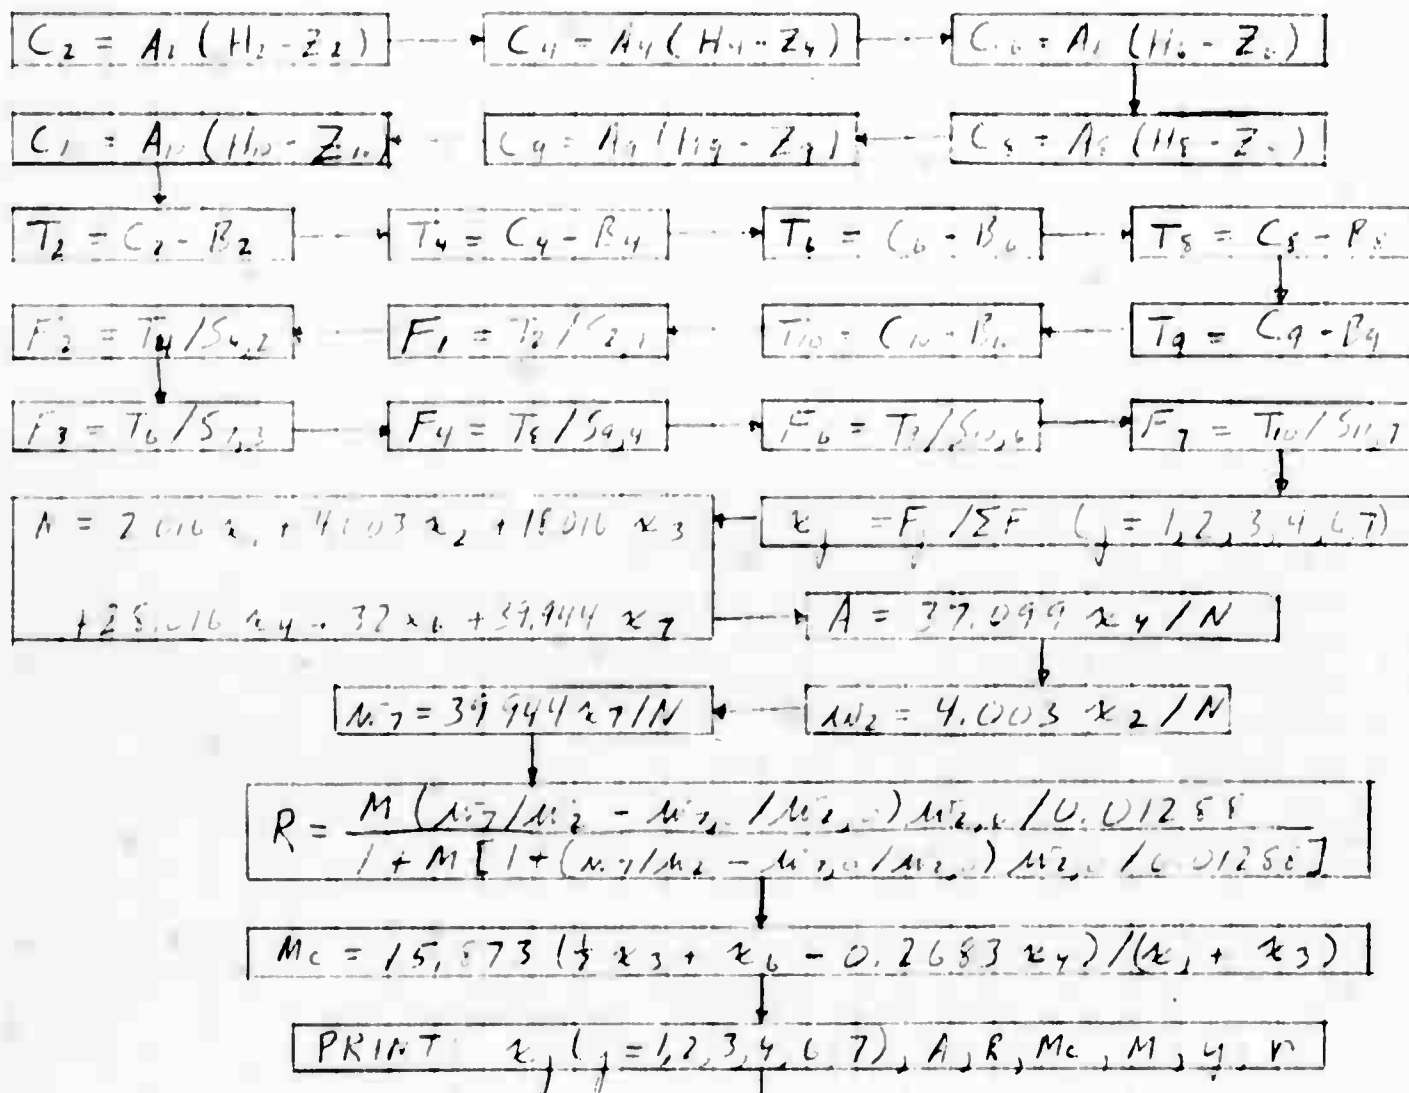 C₂ = A₂ (H₂ - Z₂) C₄ = A₄ (H₄ - Z₄) C₆ = A₆ (H₆ - Z₆)
C₁ = A₁₀ (H₁₀ - Z₁₀) C₉ = A₉ (H₉ - Z₉) C₈ = A₈ (H₈ - Z₈)
T₂ = C₂ - B₂ T₄ = C₄ - B₄ T₆ = C₆ - B₆ T₈ = C₈ - B₈
F₂ = T₄/S₄,₂ F₁ = T₂/S₂,₁ T₁₀ = C₁₀ - B₁₀ T₉ = C₉ - B₉
F₃ = T₆/S₇,₃ F₄ = T₈/S₉,₄ F₆ = T₉/S₁₀,₆ F₇ = T₁₀/S₁₁,₇
N = 2.016 x₁ + 4.003 x₂ + 18.016 x₃ xⱼ = Fⱼ/ΣF (j = 1,2,3,4,6,7)
+ 28.016 x₄ + 32 x₆ + 39.944 x₇ A = 37.099 x₄/N
w₇ = 39.944 x₇/N w₂ = 4.003 x₂/N
R = M (w₇/w₂ - w₇,₀/w₂,₀) w₂,₀/0.01288
1 + M [1 + (w₇/w₂ - w₇,₀/w₂,₀) w₂,₀/0.01288]
Mc = 15.873 (½ x₃ + x₆ - 0.2683 x₄)/(x₁ + x₃)
PRINT xⱼ (j = 1,2,3,4,6,7), A, R, Mc, M, y, n